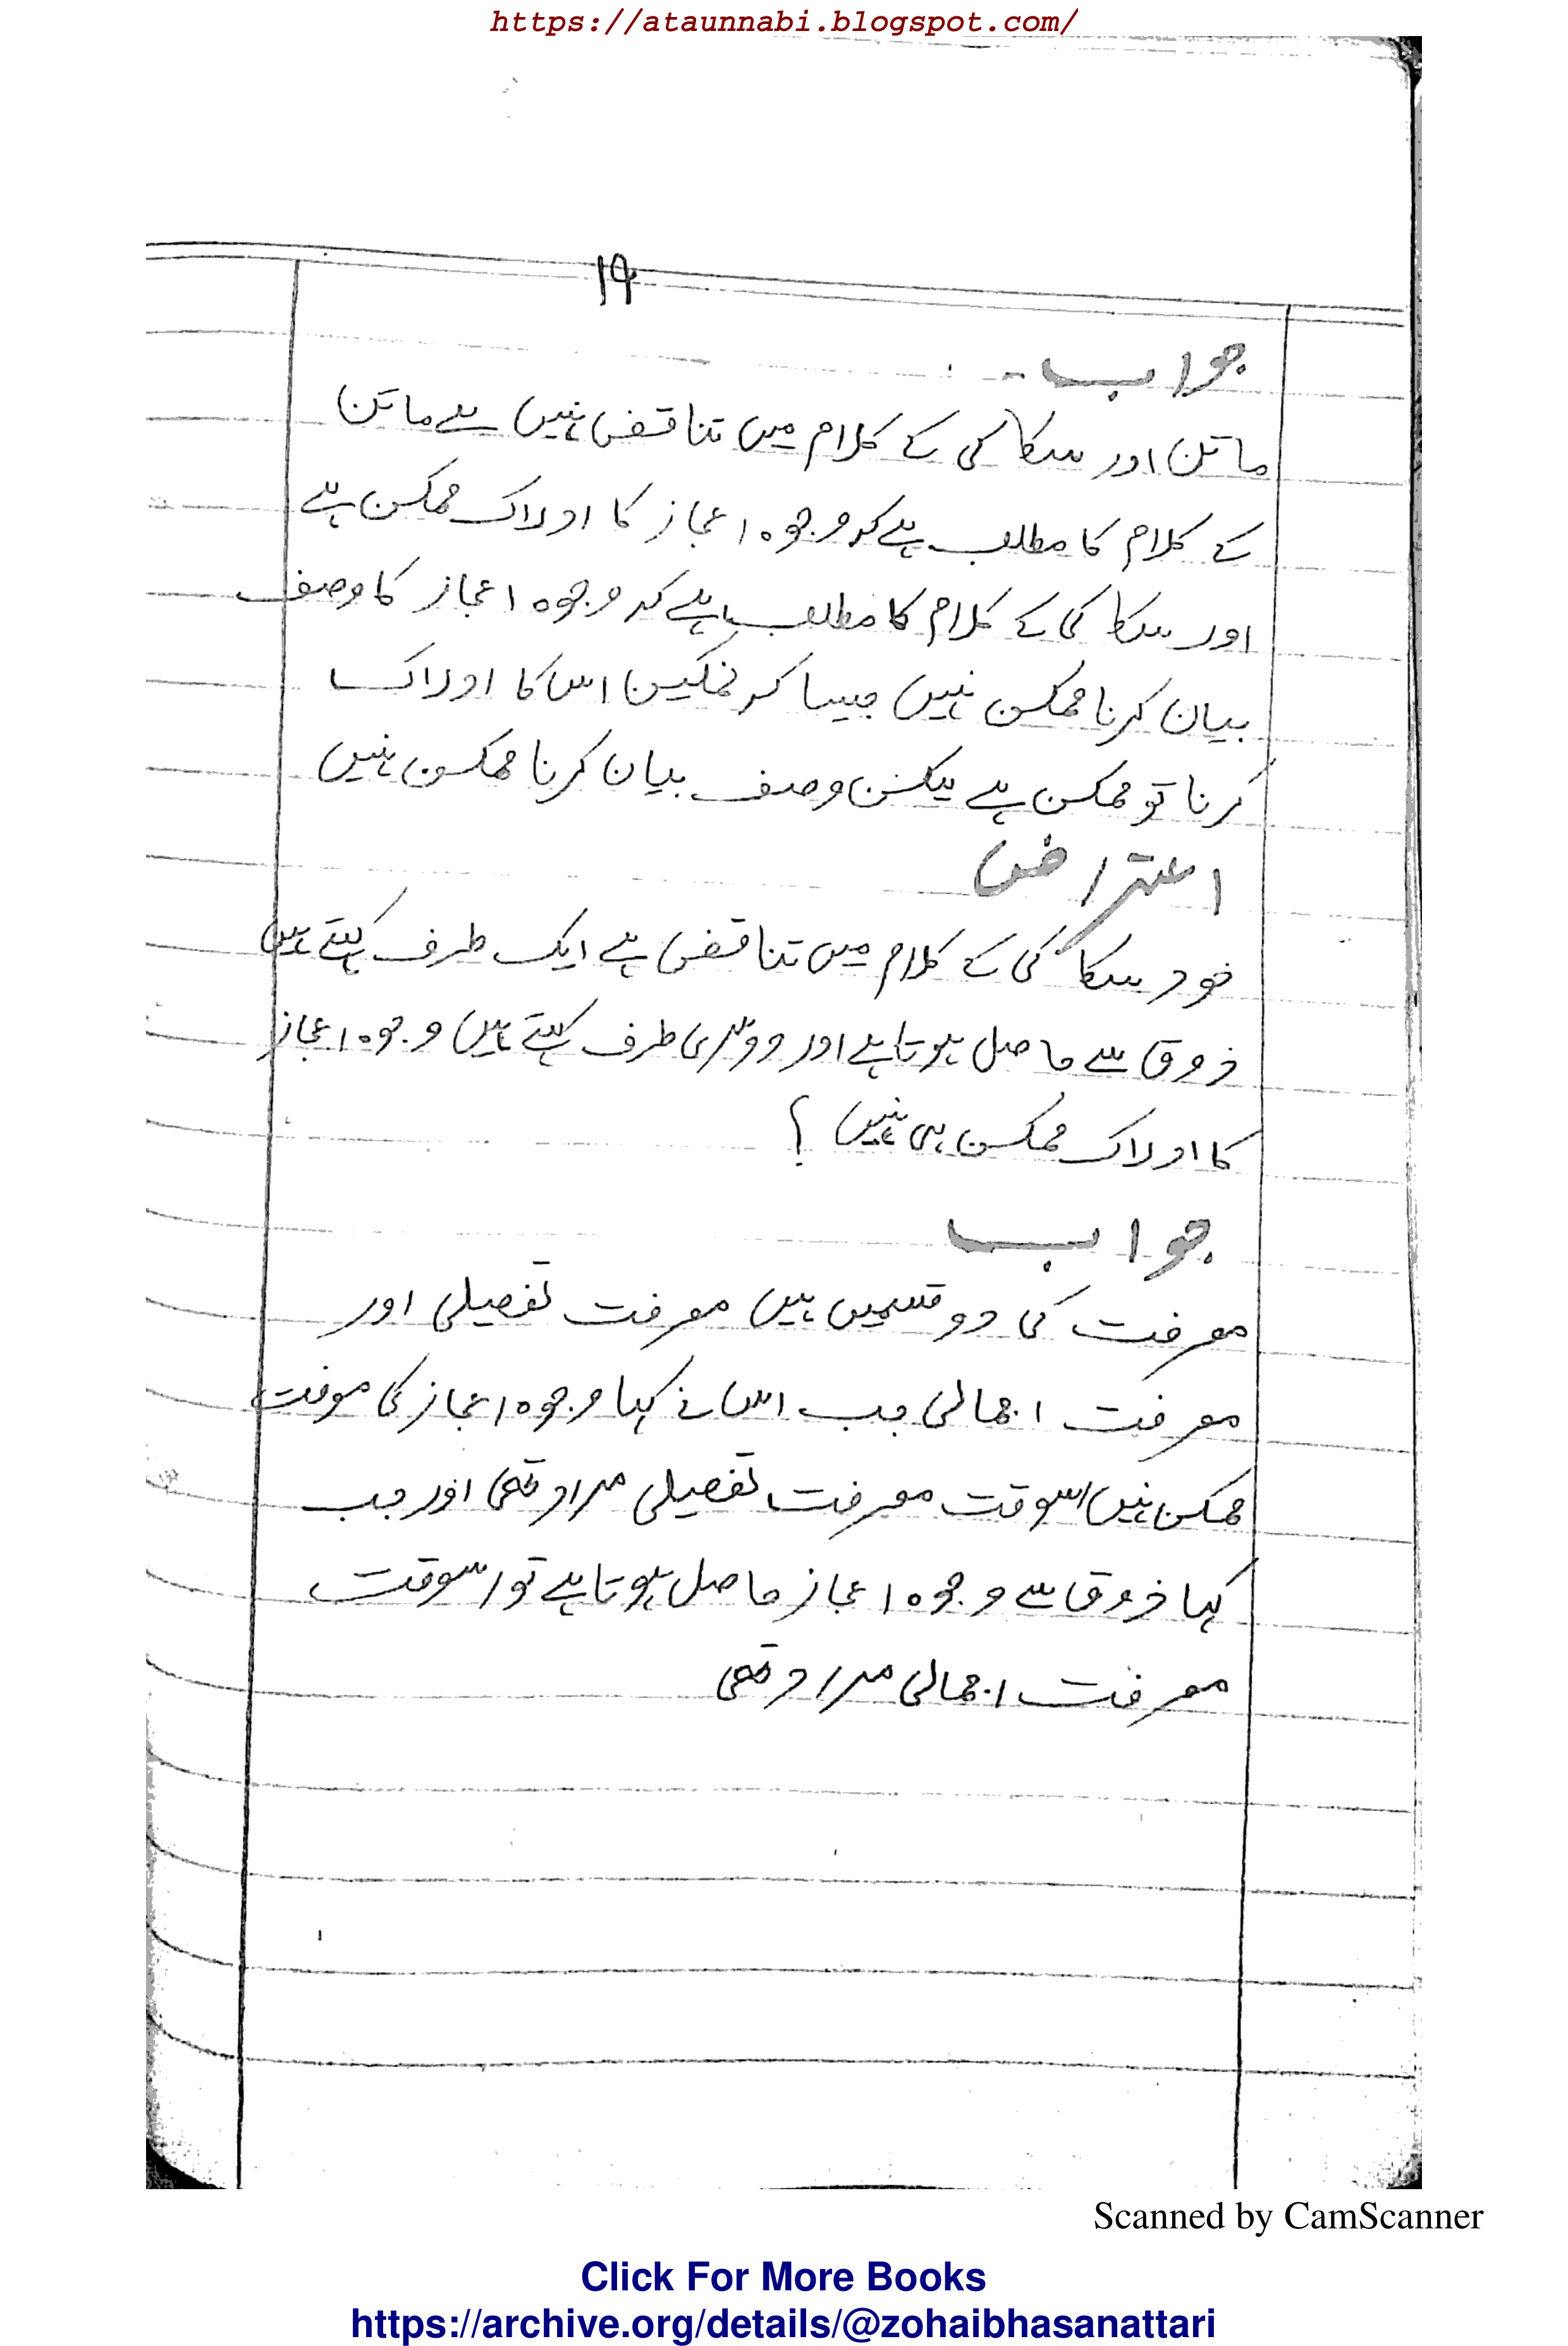 https://ataunnabi.blogspot.com/
19
جواب -
ماتن اور سکاکی کے کلام میں تناقض نہیں ہے ماتن
کے کلام کا مطلب ہے کہ وجوہ اعجاز کا ادراک ممکن ہے
اور سکاکی کے کلام کا مطلب ہے کہ وجوہ اعجاز کا وصف
بیان کرنا ممکن نہیں جیسا کہ نمکین اس کا ادراک
کرنا تو ممکن ہے لیکن وصف بیان کرنا ممکن نہیں
اعتراض
خود سکاکی کے کلام میں تناقض ہے ایک طرف کہتے ہیں
ذوق سے حاصل ہوتا ہے اور دوسری طرف کہتے ہیں وجوہ اعجاز
کا ادراک ممکن ہی نہیں ؟
جواب
معرفت کی دو قسمیں ہیں معرفت تفصیلی اور
معرفت اجمالی جب اس نے کہا وجوہ اعجاز کی معرفت
ممکن نہیں اسوقت معرفت تفصیلی مراد تھی اور جب
کہا ذوق سے وجوہ اعجاز حاصل ہوتا ہے تو اسوقت
معرفت اجمالی مراد تھی
Scanned by CamScanner
Click For More Books
https://archive.org/details/@zohaibhasanattari